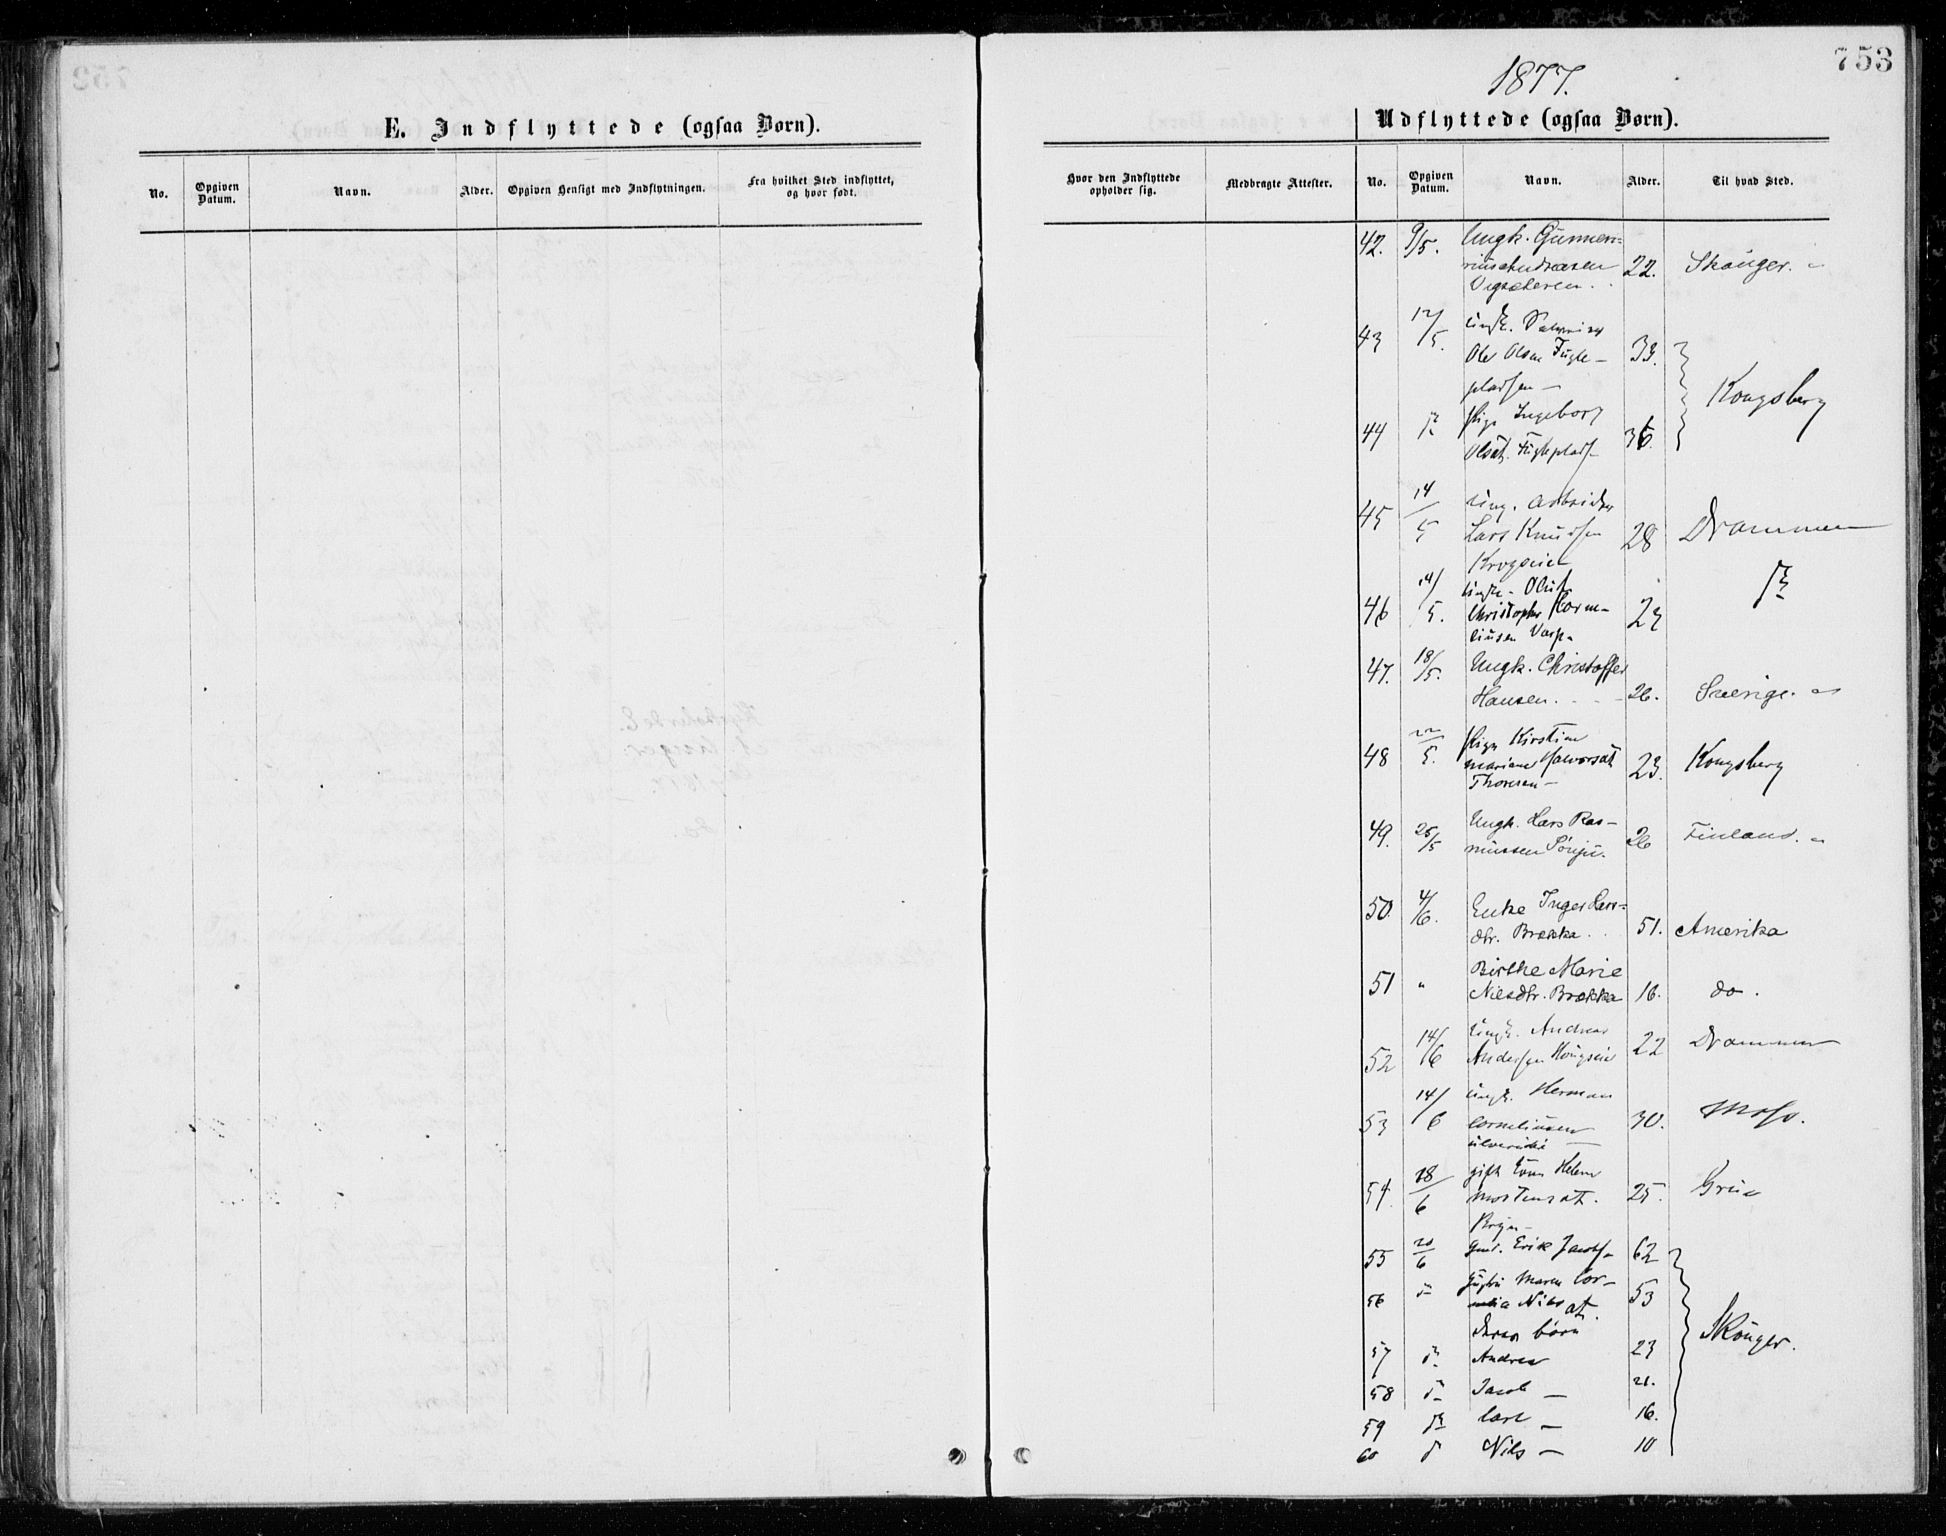 753
1877.
E. Indflyttede (ogsaa Børn).
Udflyttede (ogsaa Børn).
No.
Opgiven Datum.
Navn.
Alder.
Opgiven Hensigt med Indflytningen.
Fra hvilket Sted indflyttet, og hvor født.
Hvor den Indflyttede opholder sig.
Medbragte Attester.
No.
Opgiven Datum.
Navn.
Alder.
Til hvad Sted.
42. 9/5. Ungk. Gunne-
rius Andreasen 22. Skauger.
43 12/5. Ungk.
Ole Olsen Fugle- 33.
pladsen – Kongsberg
44 Pige Ingeborg
Olsdt. Fuglepladsn 36.
45 14/5 Ung. Arbeider
Lars Knudsen 28 Drammen
46 14/5. Ungk. Oluf
Christopher Corne- 23
liusen
47. 18/5. Ungk. Christoffer
Hansen. 26. Sverige.
48 22/5. Pige Kirstine
Mariane Halvorsdt. 23. Kongsberg
Thoresen –
49. 25/5 Ungk. Lars Ras-
mussen 26 Finland.
50. 4/6. Enke Inger Lars-
dtr. Brækka. 51. Amerika
51 " Birthe Marie
Nilsdtr. Brækka 16. do.
52 14/6 Ungk. Andreas
Andersen 22 Drammen
53 14/6 Ungk. Herman
Corneliusen 30. Moss.
54. 18/6 gift Helene
Mortensdt. 25.
55 20/6 Gmd. Erik Jacobsn 62
56 Maren Cor-
nelia Nilsdt. 53
børn
57 Andrea 23 Skouger.
58 Jacob – 21.
59 Carl – 16.
60 Nils – 10